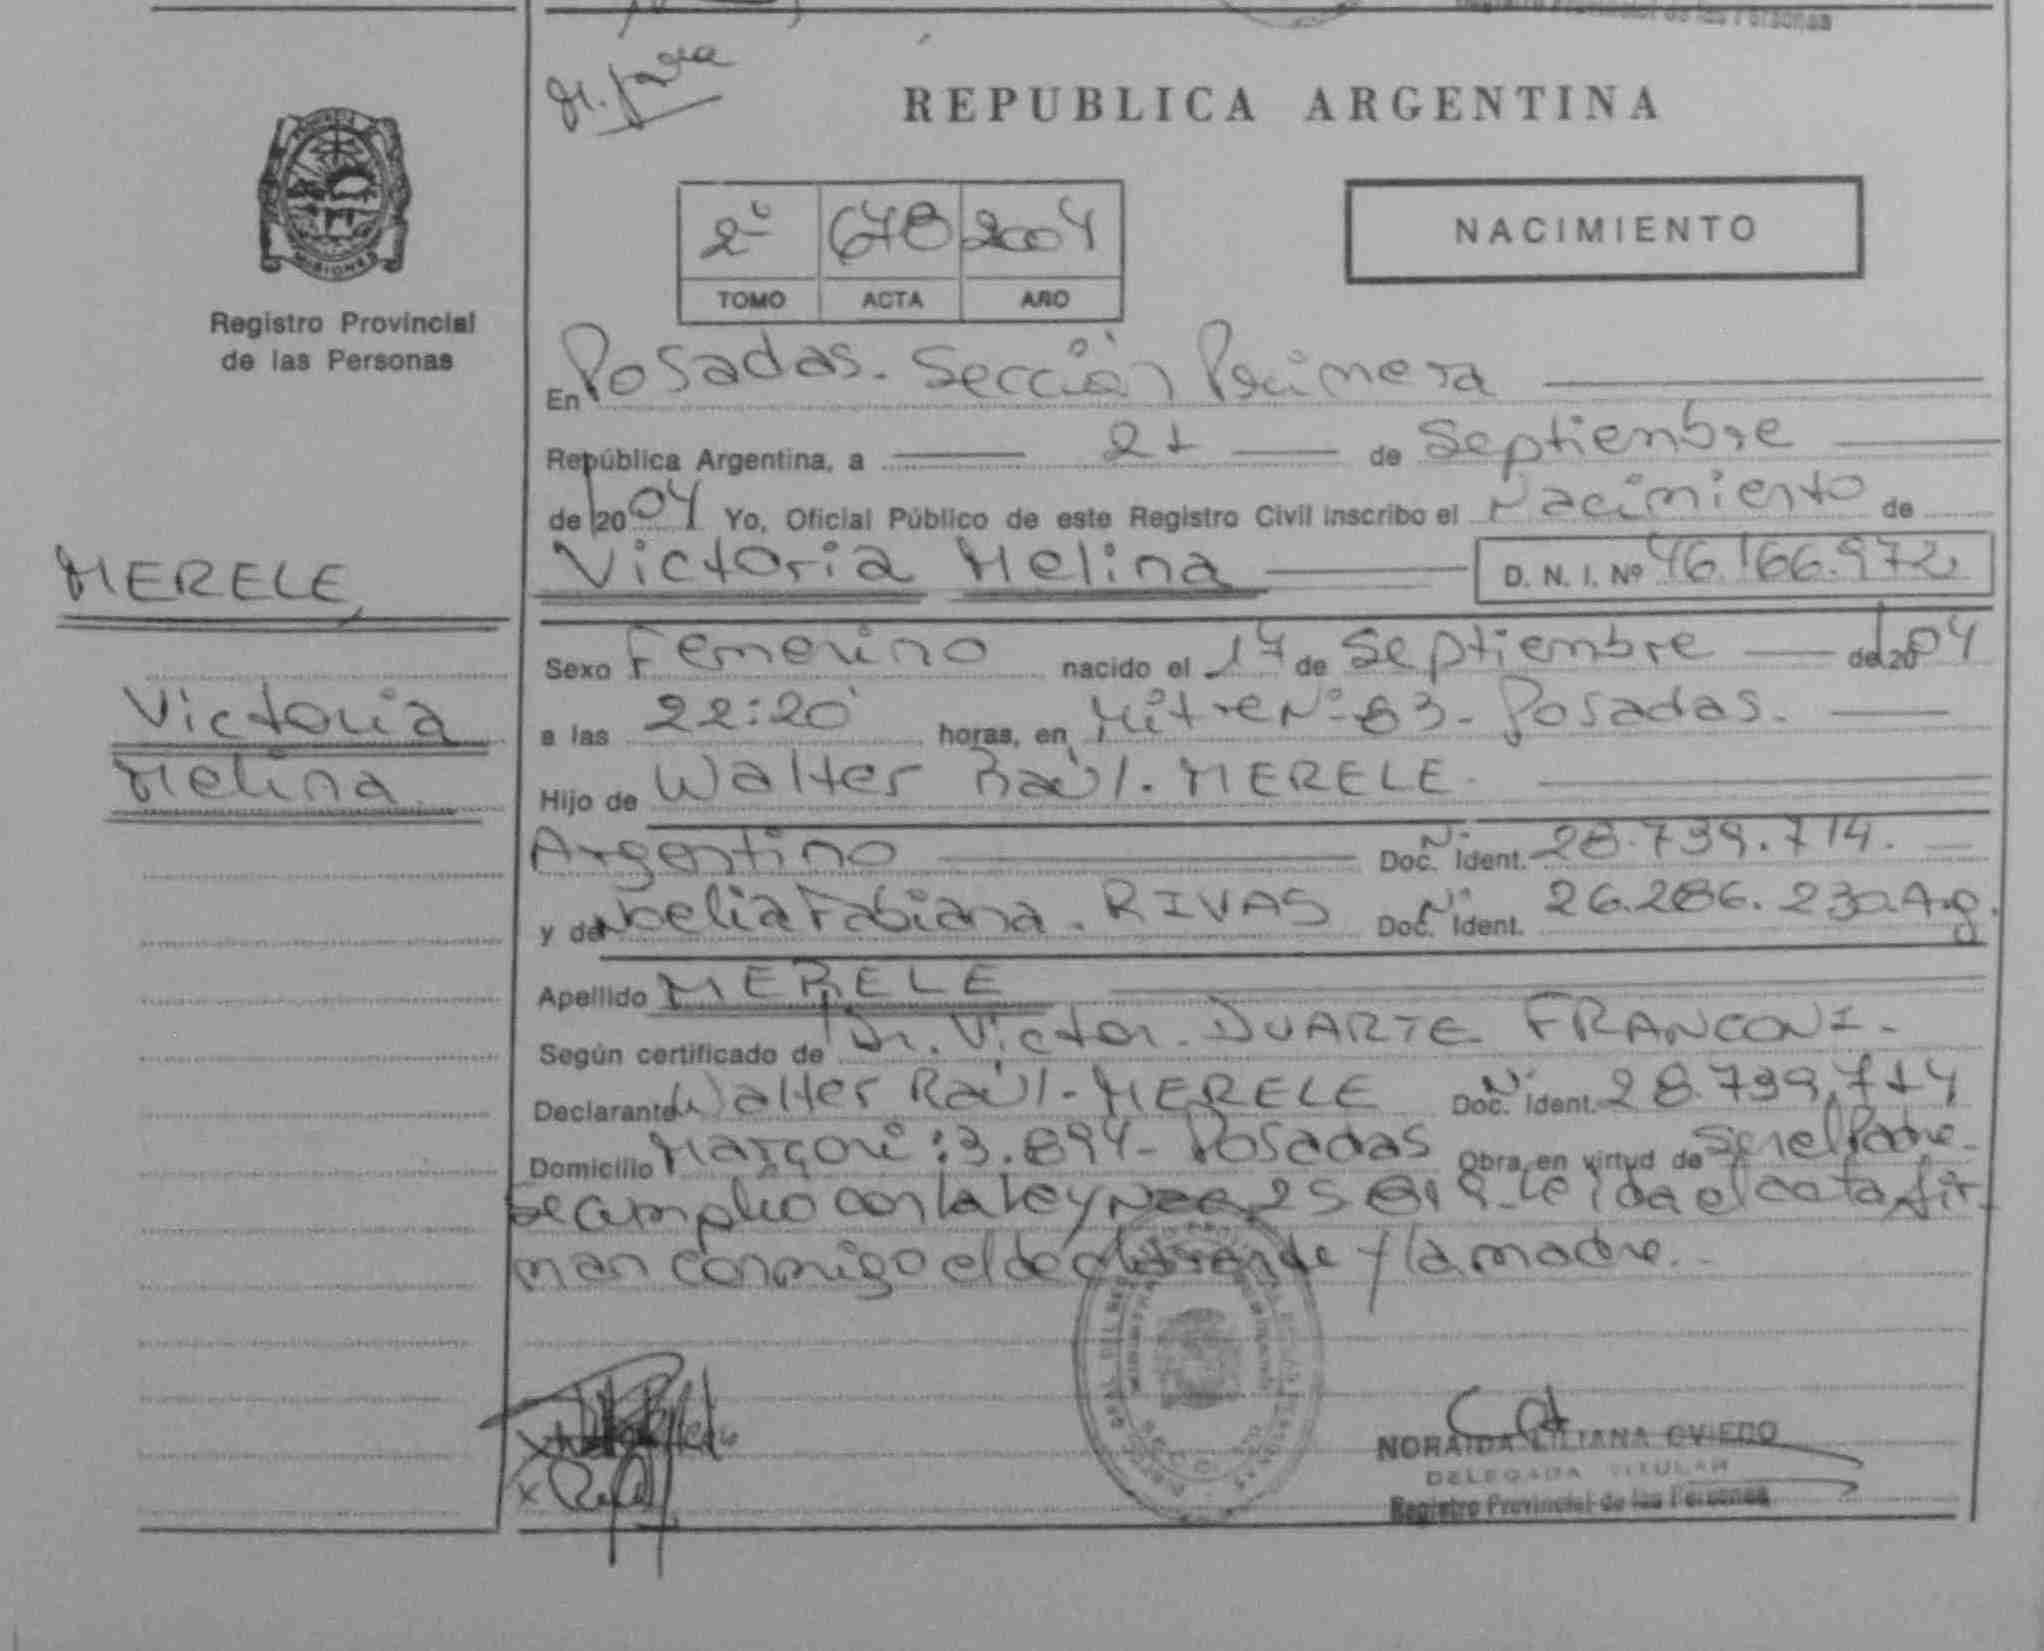 Registro Provincial de las Personas
REPUBLICA ARGENTINA
2º 678 2004
TOMO ACTA AÑO
NACIMIENTO
MISIONES
Registro Provincial
de las Personas
MERELE,
Victoria
Melina
En Posadas. Sección Primera
República Argentina, a 21 de Septiembre
de 2004 Yo, Oficial Público de este Registro Civil inscribo el Nacimiento de
Victoria Melina D. N. I. Nº 46.166.972
Sexo Femenino nacido el 17 de Septiembre de 2004
a las 22:20 horas, en Mitre Nº 83 - Posadas.
Hijo de Walter Raúl. MERELE.
Argentino Doc. Nº Ident. 28.739.714.
y de Noelia Fabiana. RIVAS Doc. Nº Ident. 26.286.230 Arg.
Apellido MERELE
Según certificado de Dr. Victor. DUARTE FRANCONI.
Declarante Walter Raúl - MERELE Doc. Nº Ident. 28.739.714
Domicilio Marconi: 3.894 - Posadas Obra en virtud de Ser el Padre.
Se cumplio con la Ley 25 819 Leida el acta fir
man conmigo el declarante y la madre.
NORAIDA LILIANA OVIEDO
DELEGADA TITULAR
Registro Provincial de las Personas